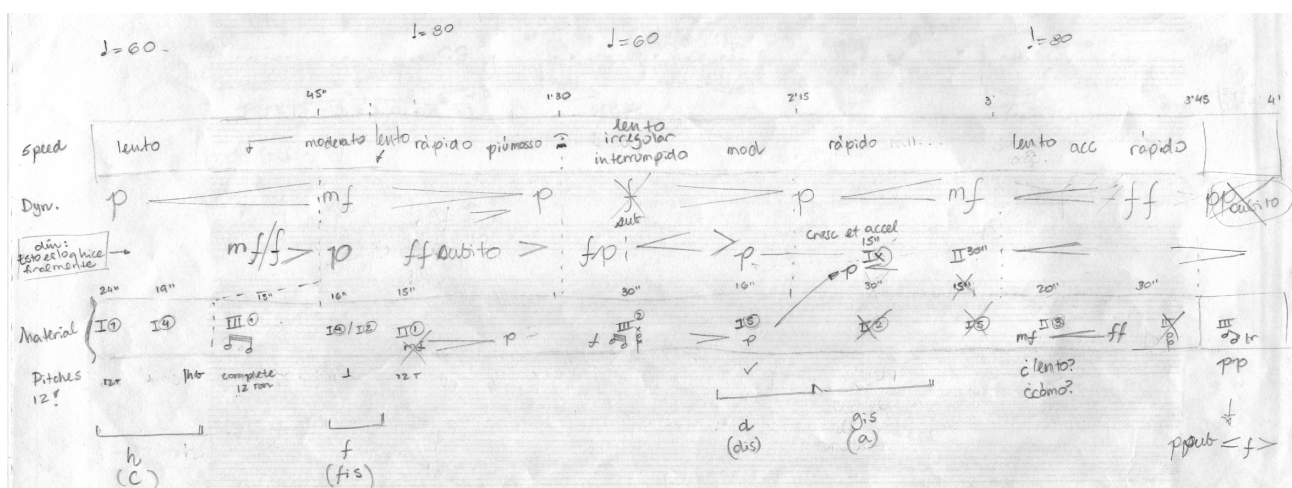 ♩=60 ♩=80 ♩=60 ♩=80
45" 1'30 2'15 3' 3'45 4'
Speed lento moderato lento rápido più mosso lento irregular interrumpido mod rápido lento acc rápido
Dyn. p mf p f sub p mf ff pp subito
dín: Esto es lo q hice finalmente → mf/f > p ff subito > fp < > p cresc et accel
24" 19" 18" 16" 15" 30" 16" p 15" I 30" II 30" 15" 20" 30"
Material I① I④ III① I④/I② II① mf p f III② I⑤ p II② I⑤ mf II③ ff III tr
Pitches 12T complete 12 ton 12T ✓ ¿lento? pp
12! ¿cómo?
h f d gis ppsub < f >
(c) (fis) (dis) (a)